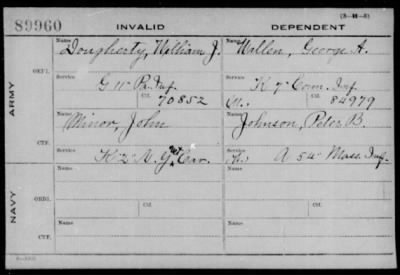 (3-M-8)
89960 INVALID DEPENDENT
Name Name
Dougherty, William J. Mullen, George A.
ORIG. Service Service
G 11" Pa. Inf. K 7" Conn. Inf.
Ctf. 70852 M. Ctf. 84979
ARMY
Name Name
Minor, John Johnson, Peter B.
CTF. Service Service
K 2" A. Cav. A 54" Mass. Inf.
Name Name
ORIG. Service Service
Ctf. Ctf.
NAVY
Name Name
CTF. Service Service